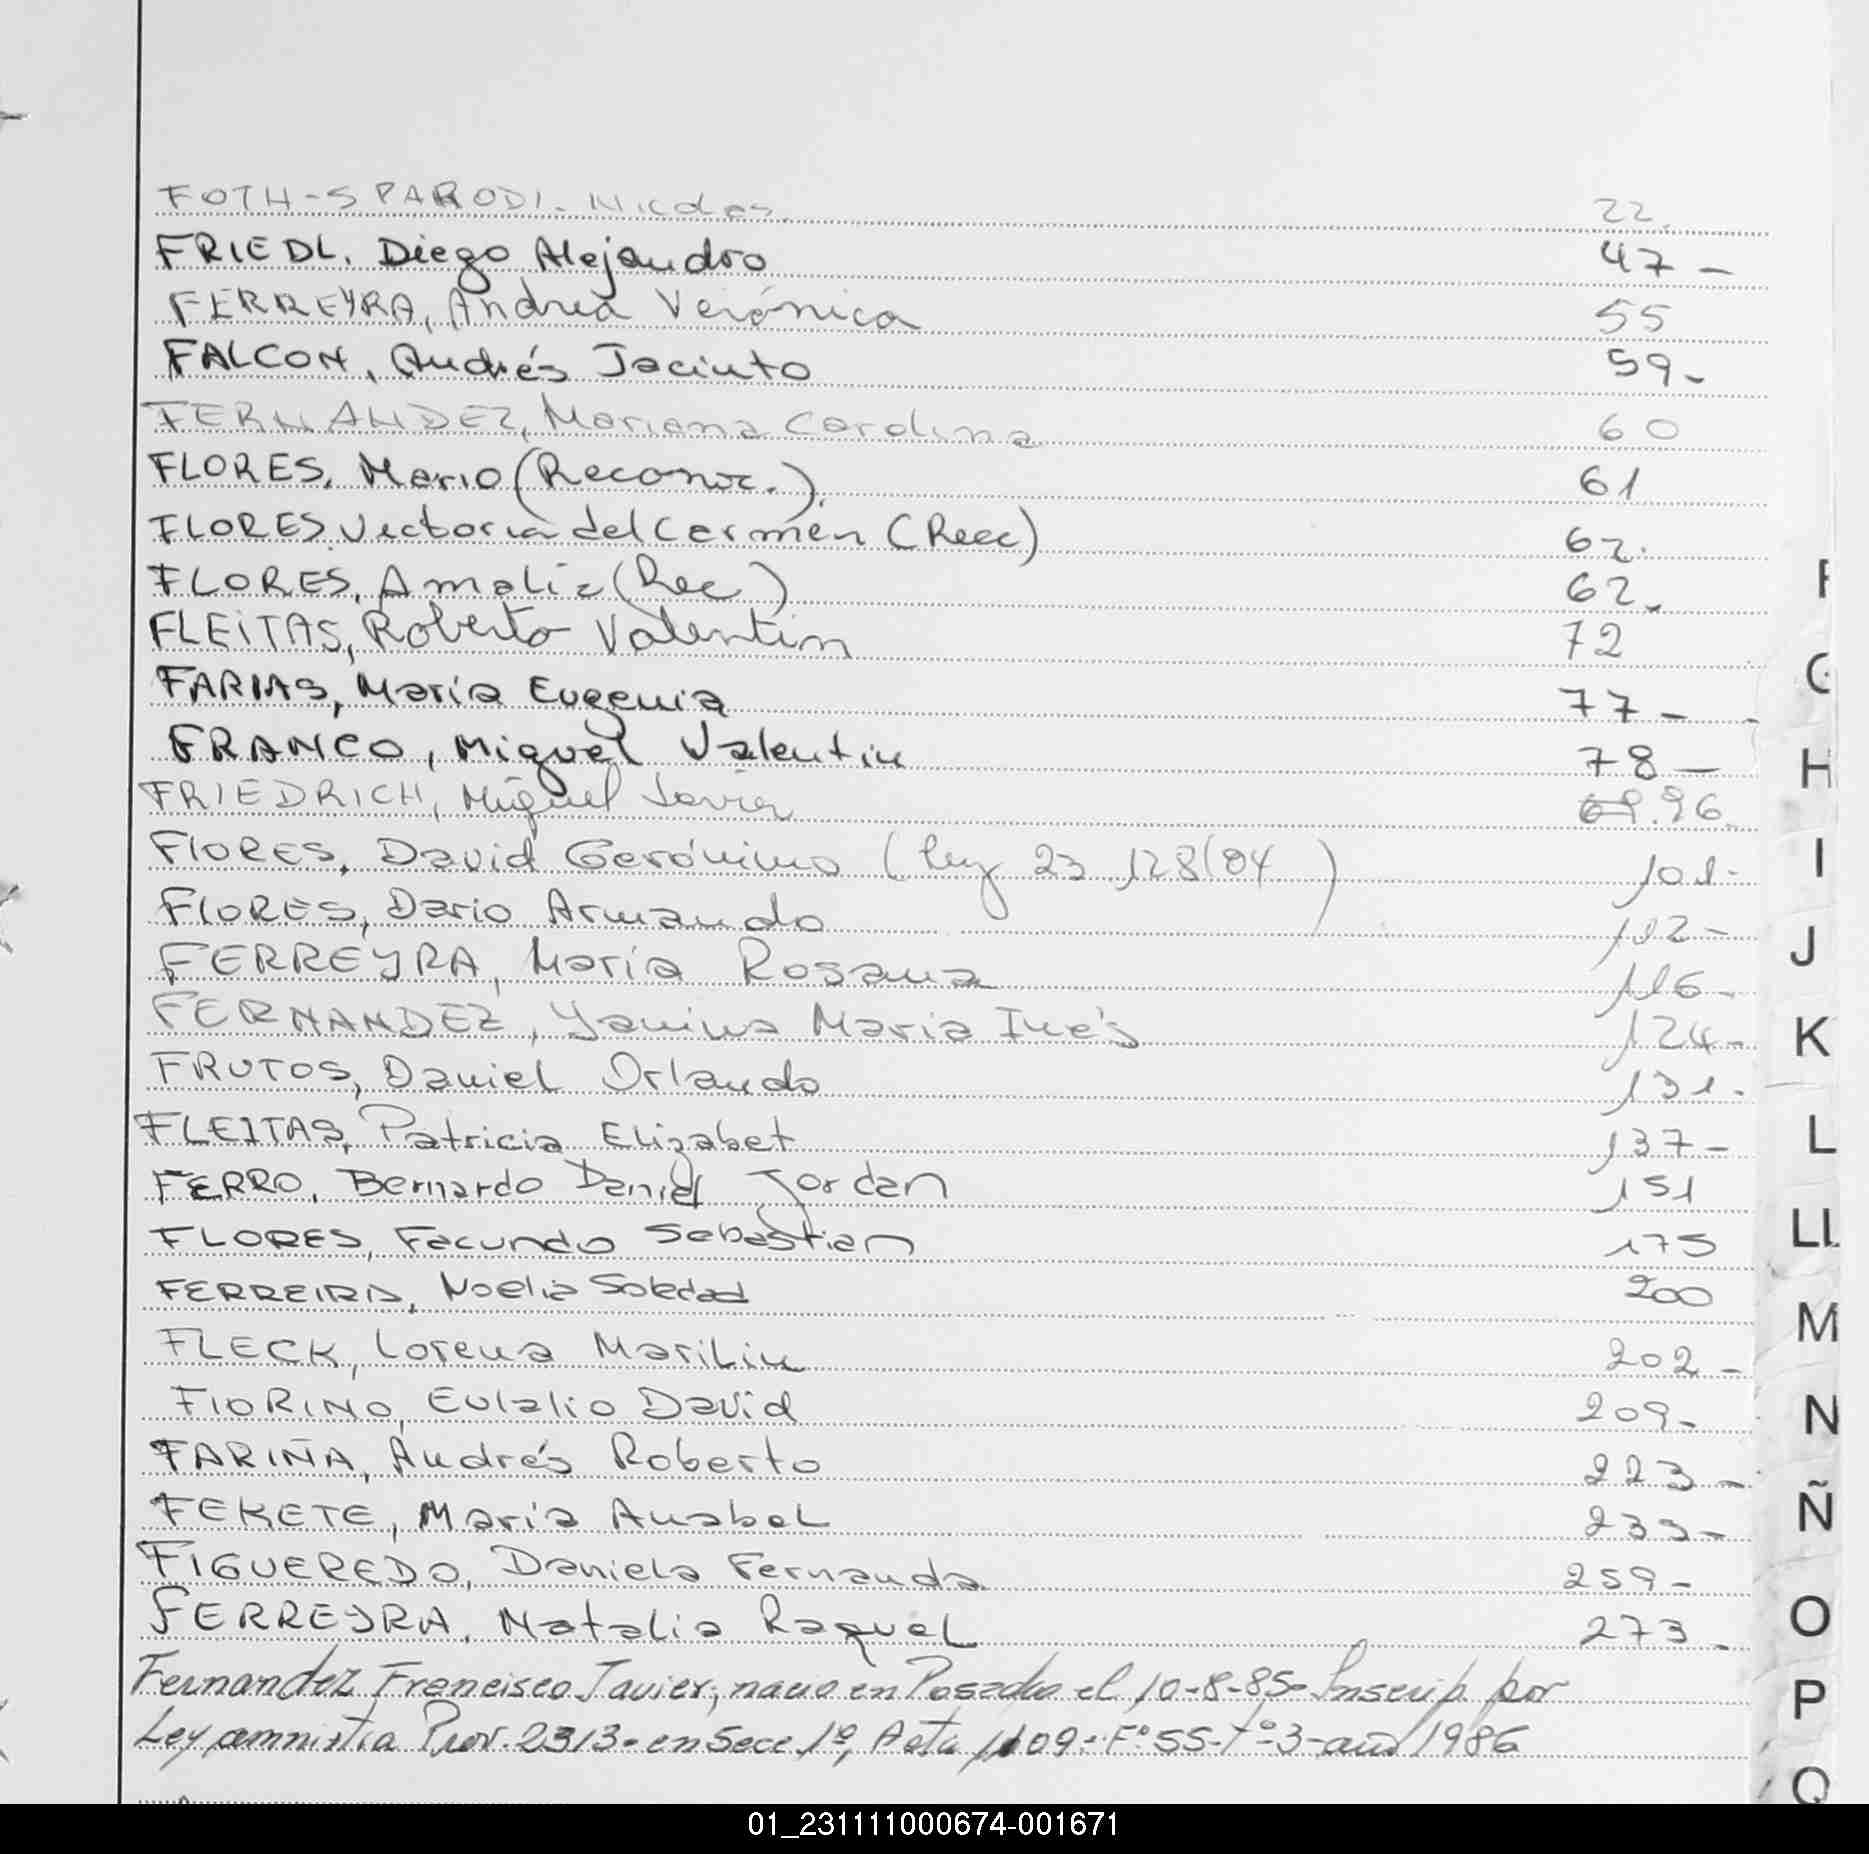 FOTH-SPARODI. Nicolas. 22.
FRIEDL. Diego Alejandro 47-
FERREYRA, Andrea Verónica 55
FALCON, Andrés Jacinto 59-
FERNANDEZ, Mariana Carolina 60
FLORES, Mario (Reconoc.). 61
FLORES Victoria del Carmen (Recc) 62.
FLORES, Amalia (Rec) 62.
FLEITAS, Roberto Valentin 72
FARIAS, María Eugenia 77-
FRANCO, Miguel Valentin 78-
FRIEDRICH, Miguel Javier 69.96.
FLORES, David Gerónimo (Ley 23.128/84) 101-
FLORES, Dario Armando 102-
FERREYRA, María Rosana 116-
FERNANDEZ, Yanina Maria Inés 124-
FRUTOS, Daniel Orlando 131-
FLEITAS, Patricia Elizabet 137-
FERRO, Bernardo Daniel Jordan 151
FLORES, Facundo Sebastian 175
FERREIRA, Noelia Soledad 200
FLECK, Lorena Marilin 202-
FIORINO, Eulalio David 209-
FARIÑA, Andrés Roberto 223-
FEKETE, María Anabel 235-
FIGUEREDO, Daniela Fernanda 259-
FERREYRA, Natalia Raquel 273-
Fernandez Francisco Javier, nacio en Posadas el 10-8-85- Inscrip. por
Ley amnistia Prov. 2313- en Secc 1º, Acta 1109- Fº 55- Tº-3- año 1986
F
G
H
I
J
K
L
LL
M
N
Ñ
O
P
Q
01_231111000674-001671